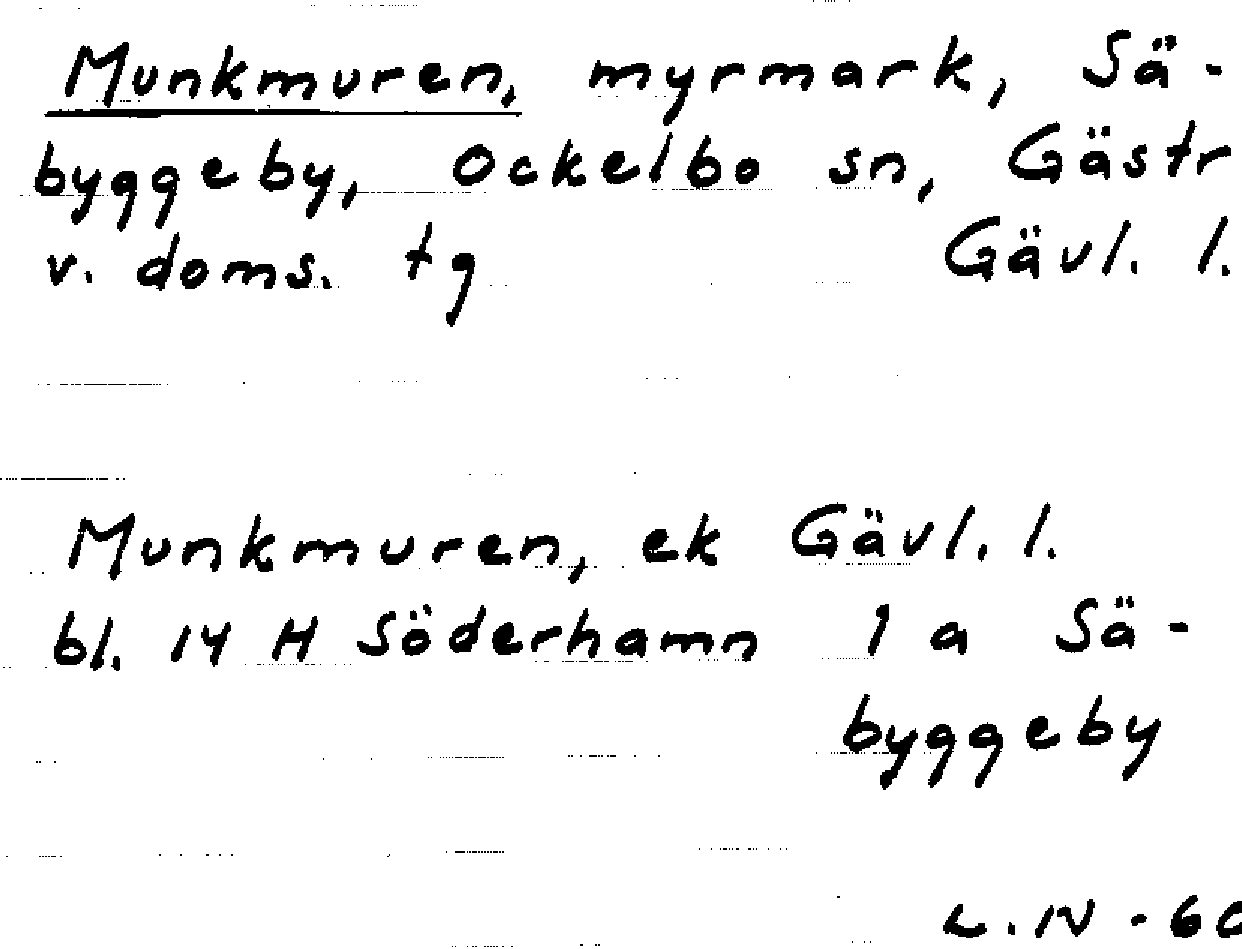 Munkmuren, myrmark, Sä-
byggeby, Ockelbo sn, Gästr
v. doms. tg Gävl. l.
Munkmuren, ek Gävl. l.
bl. 14 H Söderhamn 1 a Sä-
byggeby
L.N-60